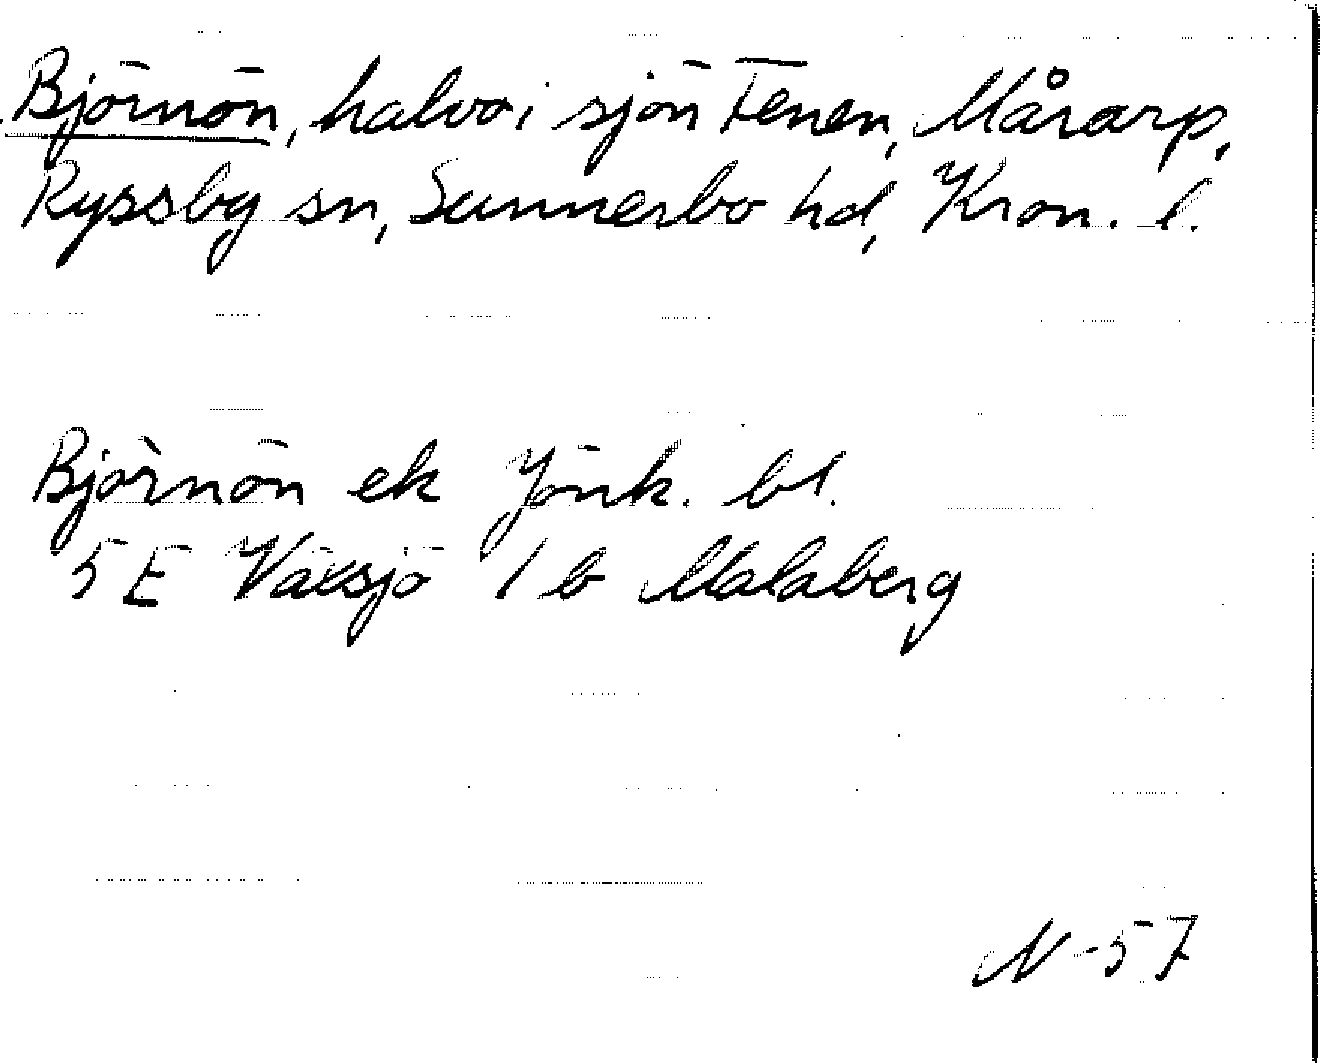 Björnön, halvö i sjön Fenen, Mårarp,
Ryssby sn, Sunnerbo hd, Kron. l.
Björnön ek Jönk. bl.
5 E Växsjö 1 b Malaberg
N-57